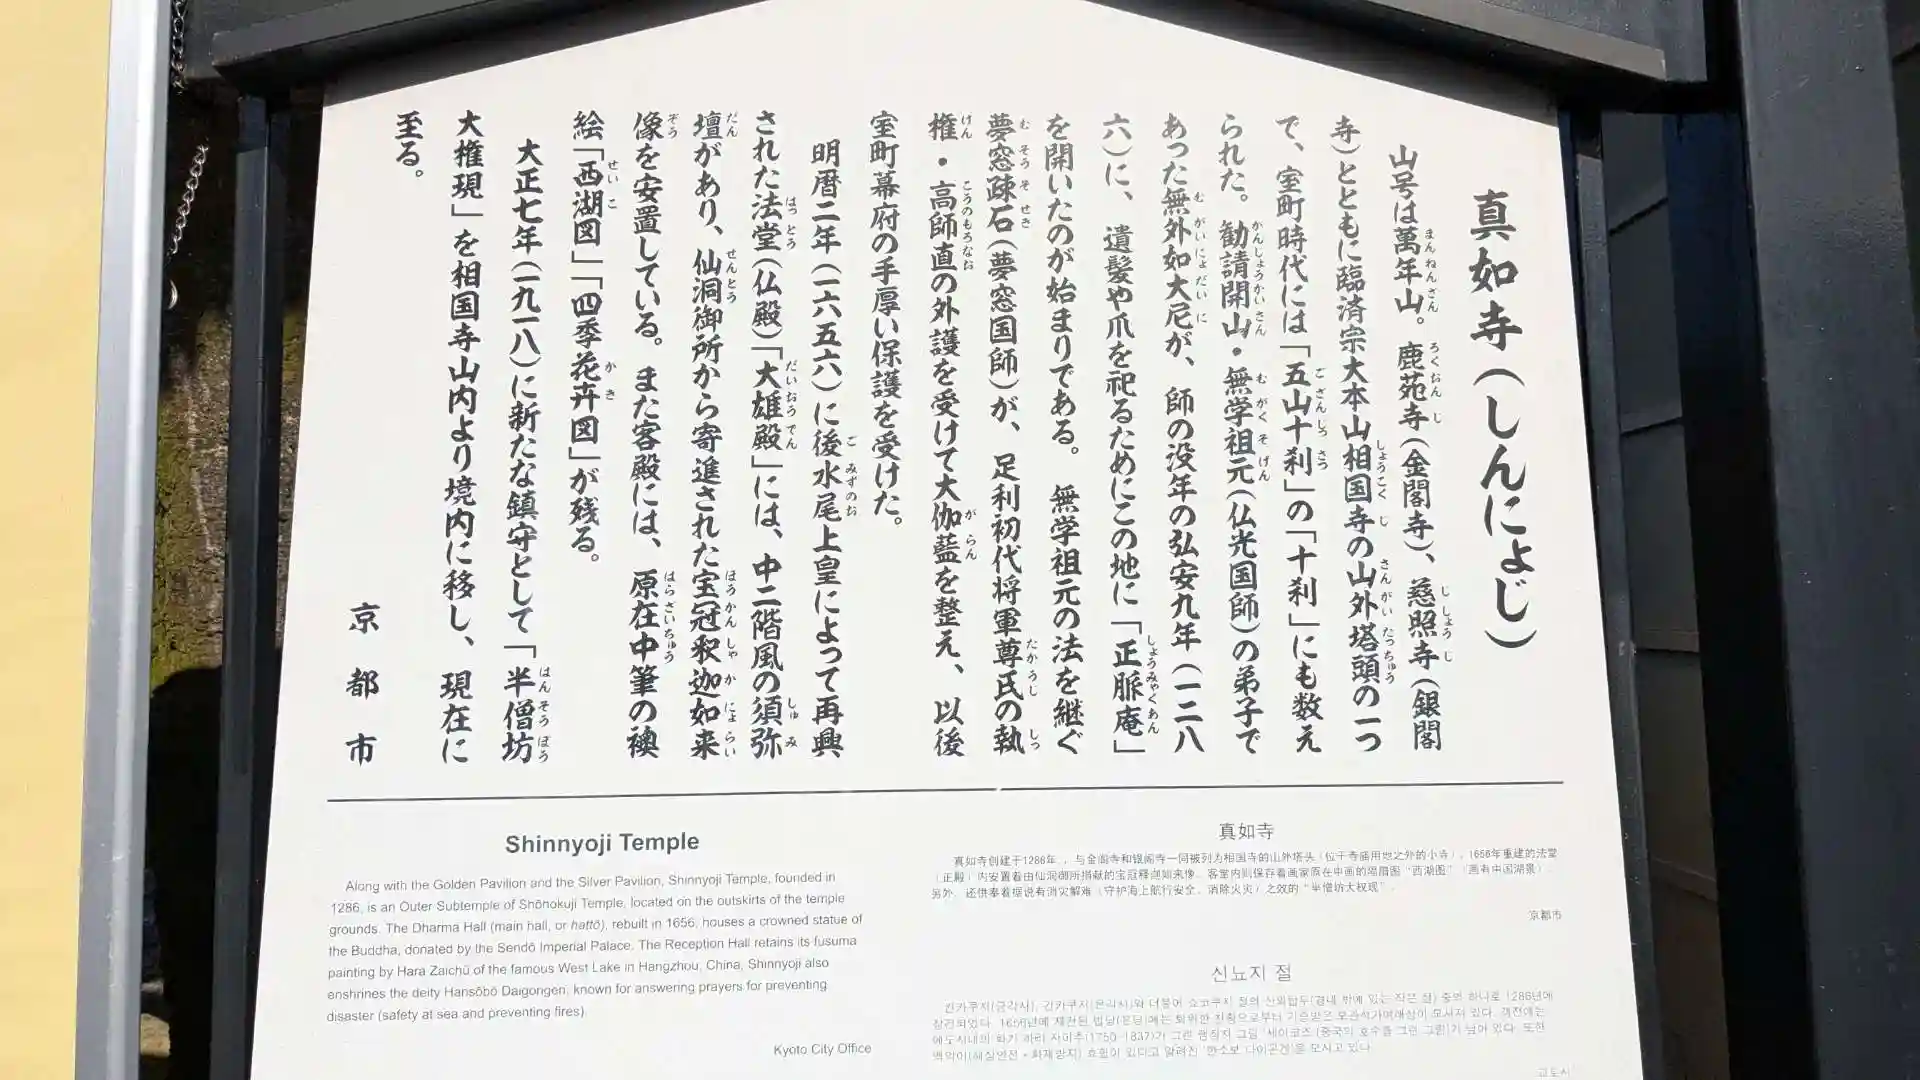 真如寺（しんにょじ）
山号は萬年山。鹿苑寺（金閣寺）、慈照寺（銀閣
寺）とともに臨済宗大本山相国寺の山外塔頭の一つ
で、室町時代には「五山十刹」の「十刹」にも数え
られた。勧請開山・無学祖元（仏光国師）の弟子で
あった無外如大尼が、師の没年の弘安九年（一二八
六）に、遺髪や爪を祀るためにこの地に「正脈庵」
を開いたのが始まりである。無学祖元の法を継ぐ
夢窓疎石（夢窓国師）が、足利初代将軍尊氏の執
権・高師直の外護を受けて大伽藍を整え、以後
室町幕府の手厚い保護を受けた。
明暦二年（一六五六）に後水尾上皇によって再興
された法堂（仏殿）「大雄殿」には、中二階風の須弥
壇があり、仙洞御所から寄進された宝冠釈迦如来
像を安置している。また客殿には、原在中筆の襖
絵「西湖図」「四季花卉図」が残る。
大正七年（一九一八）に新たな鎮守として「半僧坊
大権現」を相国寺山内より境内に移し、現在に
至る。
京都市
Shinnyoji Temple
Along with the Golden Pavilion and the Silver Pavilion, Shinnyoji Temple, founded in
1286, is an Outer Subtemple of Shōhokuji Temple, located on the outskirts of the temple
grounds. The Dharma Hall (main hall, or hattō), rebuilt in 1656, houses a crowned statue of
the Buddha, donated by the Sendō Imperial Palace. The Reception Hall retains its fusuma
painting by Hara Zaichū of the famous West Lake in Hangzhou, China. Shinnyoji also
enshrines the deity Hansōbō Daigongen, known for answering prayers for preventing
disaster (safety at sea and preventing fires).
Kyoto City Office
真如寺
真如寺创建于1286年，与金阁寺和银阁寺一同被列为相国寺的山外塔头（位于寺庙用地之外的小寺）。1656年重建的法堂
（正殿）内安置着由仙洞御所捐献的宝冠释迦如来像。客室内则保存着画家原在中画的隔扇图“西湖图”（画有中国湖景）。
另外，还供奉着据说有消灾解难（守护海上航行安全、消除火灾）之效的“半僧坊大权现”。
京都市
신뇨지 절
킨카쿠지(금각사), 긴카쿠지(은각사)와 더불어 쇼코쿠지 절의 산외탑두(경내 밖에 있는 작은 절) 중의 하나로 1286년에
교토시